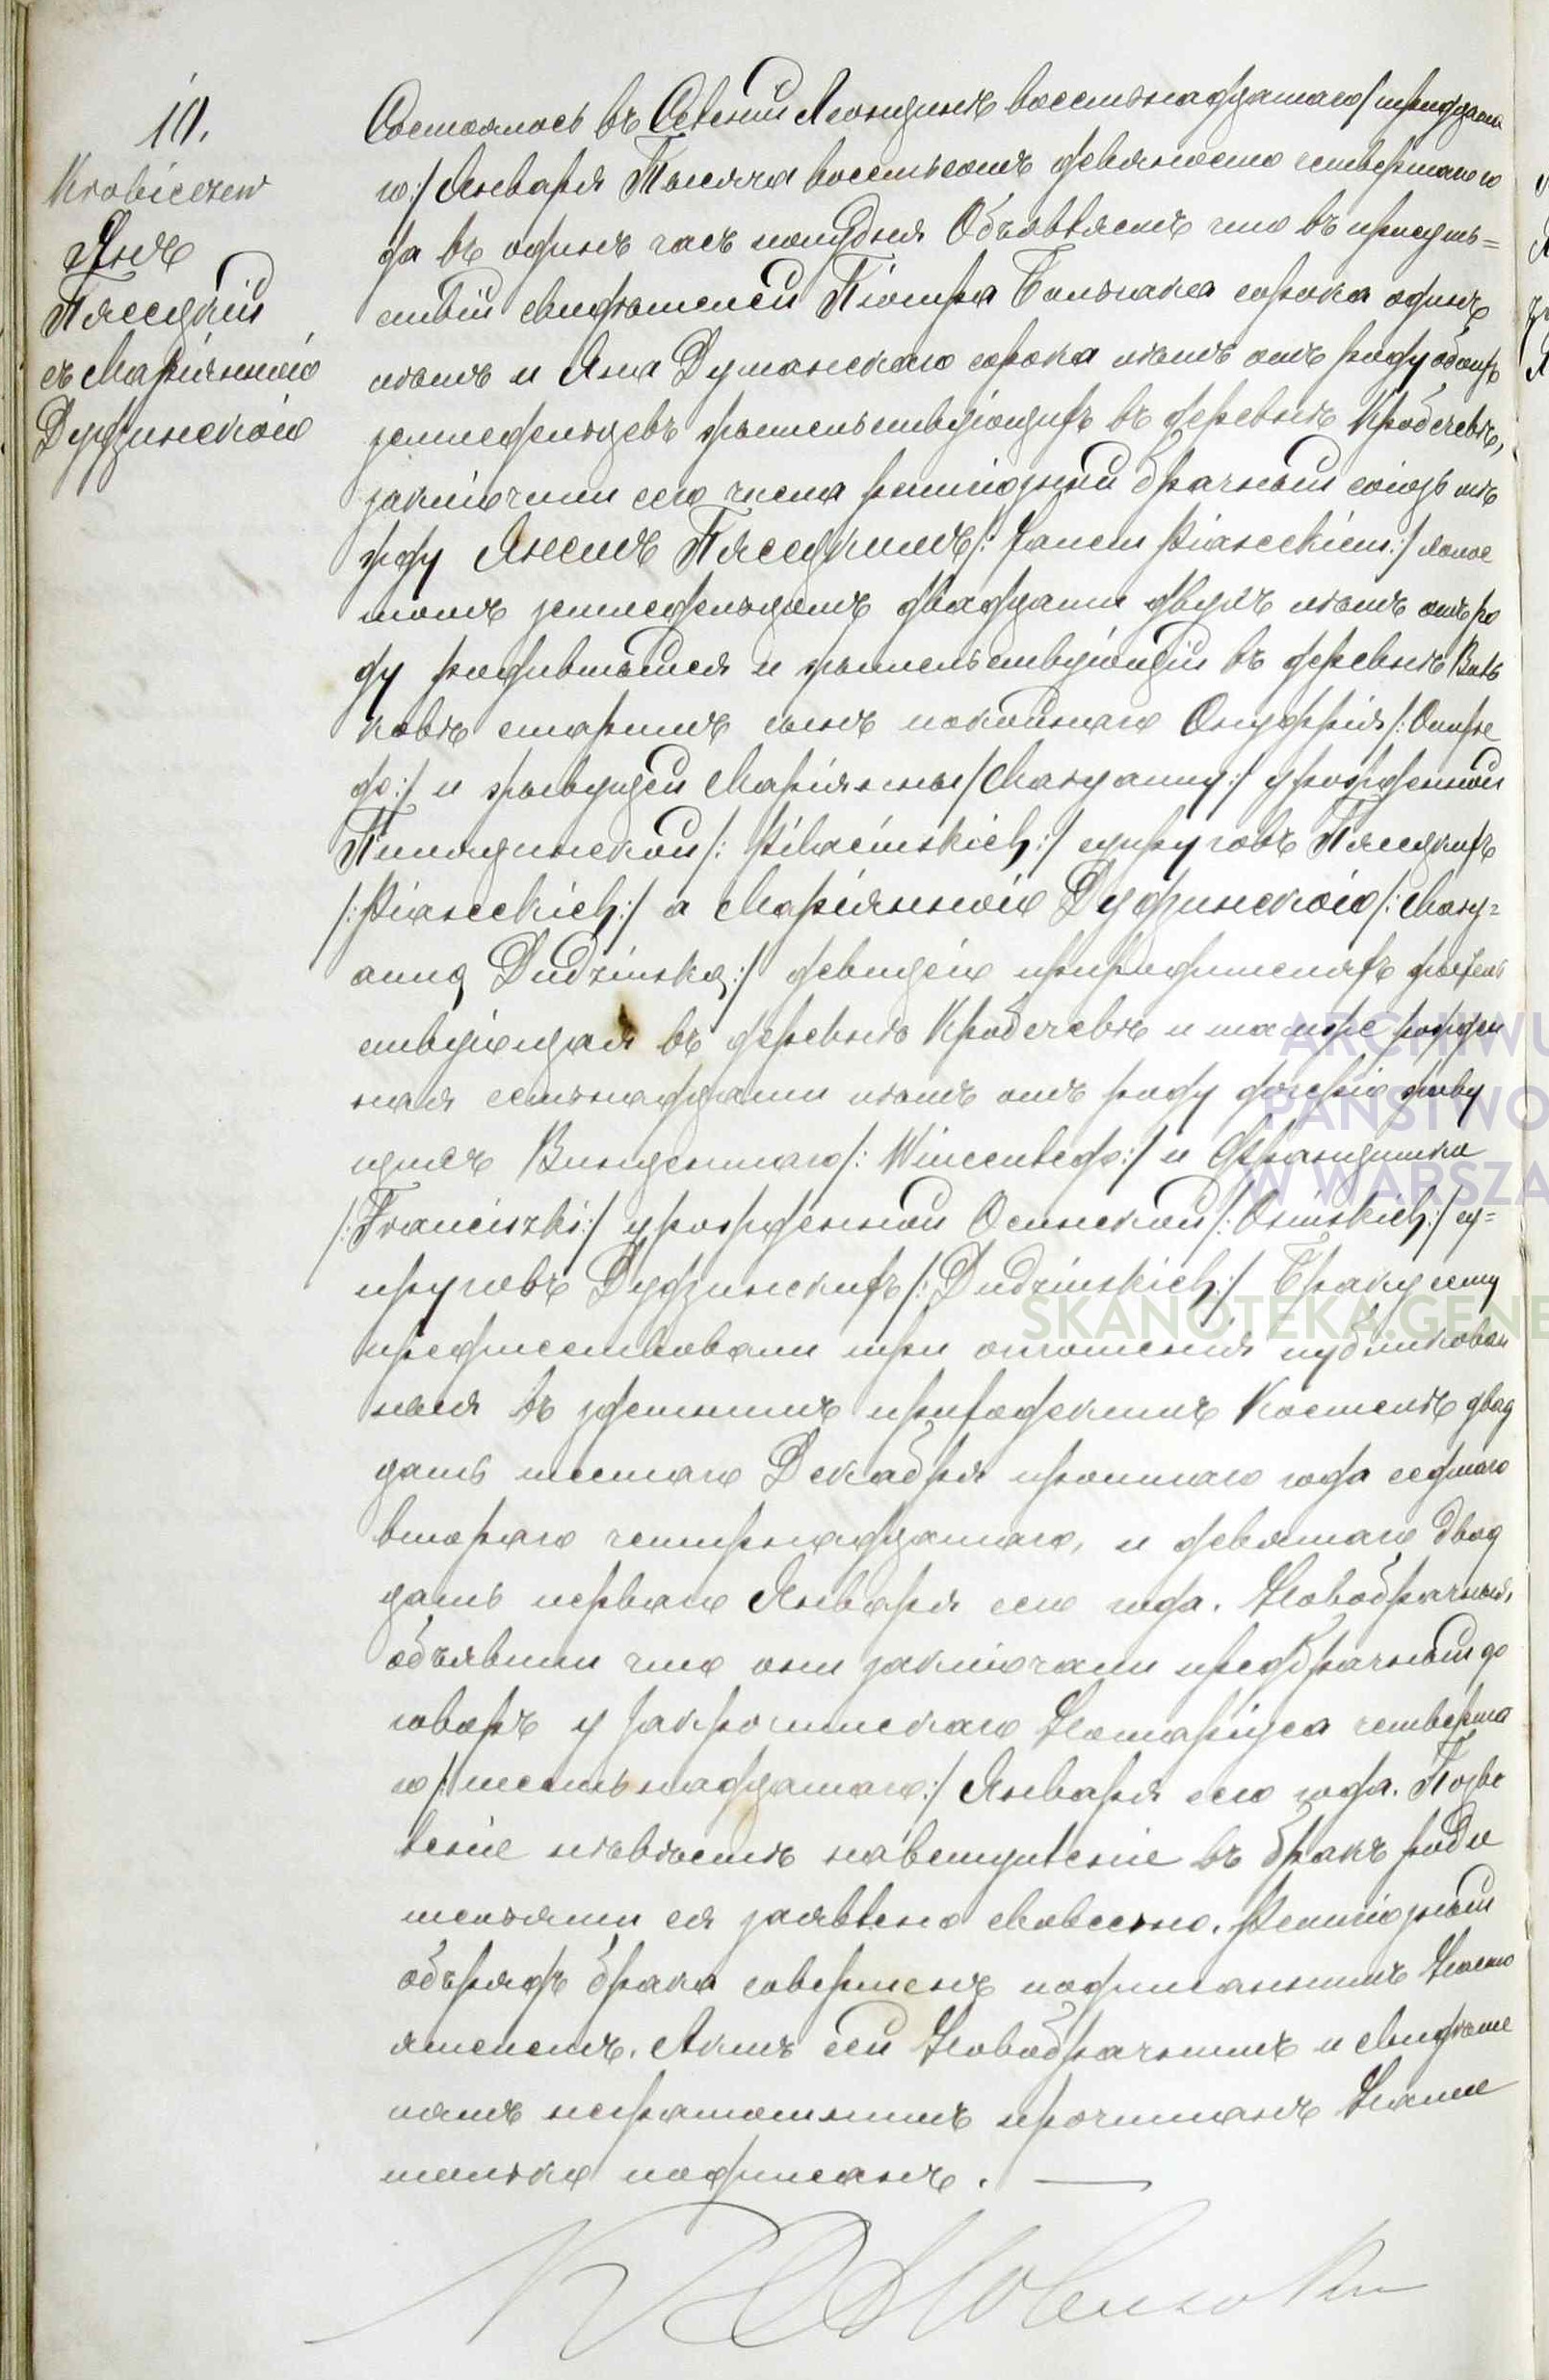 10.
Krobiczew
Янъ
Пясецкій
съ Маріянною
Дудзинскою
Состоялось въ Селеніи Леонцинѣ восемнадцатаго /:тридцата
го:/ Января Тысяча восемьсотъ девяносто четвертаго го
да въ одинъ часъ полудня Объявляемъ что въ присут=
ствіи свидѣтелей Піотра Больнака сорока одинъ
лѣтъ и Яна Думанскаго сорока лѣтъ отъ роду обоихъ
земледѣльцевъ жительствующихъ въ деревнѣ Кробичевѣ,
заключили сего числа религіозный брачный союзъ ме
жду Яномъ Пясецкимъ /:Janem Piaseckiem:/ холос
томъ земледѣльцемъ двадцати двухъ лѣтъ отъ ро
ду родившійся и жительствующій въ деревнѣ Виль
ковѣ старымъ сынъ покойнаго Онуфрія /:Onufre
go:/ и живущей Маріянны /:Maryanny:/ урожденной
Пилацинской /:Pilacińskich:/ супруговъ Пясецкихъ
/:Piaseckich:/ а Маріянною Дудзинскою /:Mary=
anną Dudzinską:/ девицею прируодителяхъ жител
ствующая въ деревнѣ Кробичевѣ и тамже рожден
ная семнадцати лѣтъ отъ роду дочерью живу
щихъ Винцентаго /:Wincentego:/ и Францишки
/:Franciszki:/ урожденной Осинской /:Osinskich:/ су=
пруговъ Дудзинскихъ /:Dudzinskich:/ Браку сему
предшествовали три оглошенія публикован
ныя въ здѣшнимъ приходскимъ Костелѣ двад
цать шестаго Декабря прошлаго года седмаго
втораго четырнадцатаго, и девятаго двад
цать перваго Января сего года. Новобрачныя,
объявили что они заключали предбрачный до
говоръ у Закрочимскаго Нотаріуса четверта
го /:шестьнадцатаго:/ Января сего года. Позво
леніе невѣстѣ на вступленіе въ бракъ роди
телями ея заявлено словесно. Религіозный
обърядъ брака совершенъ подписаннымъ Насто
ятелемъ. Актъ сей Новобрачнымъ и свидѣте
лямъ неграмотнымъ прочитанъ Нами
только подписанъ.